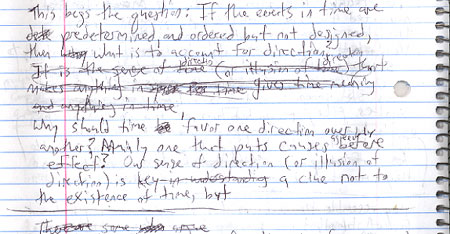 This begs the question: If the events in time are
predetermined and ordered but not designed,
then what is to account for direction?
It is the sense of time (or illusion of time) that
makes anything in time gives time meaning
and anything in time.
Why should time favor one direction over
another? Mainly one that puts causes before
effect? Our sense of direction (or illusion of
direction) is key in understanding a clue not to
the existence of time, but
There are some who argue